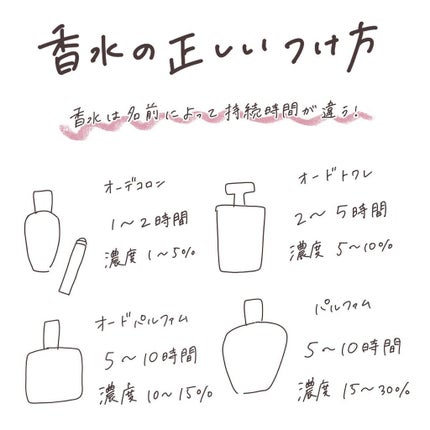 香水の正しいつけ方
香水は名前によって持続時間が違う!
オーデコロン
1〜2時間
濃度 1〜5%
オードトワレ
2〜5時間
濃度 5〜10%
オードパルファム
5〜10時間
濃度 10〜15%
パルファム
5〜10時間
濃度 15〜30%